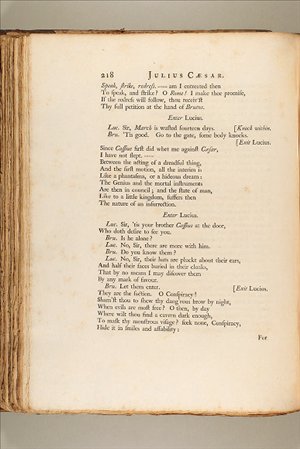 218 JULIUS CÆSAR.
Speak, ſtrike, redreſs. — am I entreated then
To ſpeak, and ſtrike? O Rome! I make thee promiſe,
If the redreſs will follow, thou receiv'ſt
Thy full petition at the hand of Brutus.
Enter Lucius.
Luc. Sir, March is waſted fourteen days. [Knock within.
Bru. 'Tis good. Go to the gate, ſome body knocks.
[Exit Lucius.
Since Caſſius firſt did whet me againſt Cæſar,
I have not ſlept. —
Between the acting of a dreadful thing,
And the firſt motion, all the interim is
Like a phantaſma, or a hideous dream:
The Genius and the mortal inſtruments
Are then in council; and the ſtate of man,
Like to a little kingdom, ſuffers then
The nature of an inſurrection.
Enter Lucius.
Luc. Sir, 'tis your brother Caſſius at the door,
Who doth deſire to ſee you.
Bru. Is he alone?
Luc. No, Sir, there are more with him.
Bru. Do you know them?
Luc. No, Sir, their hats are pluckt about their ears,
And half their faces buried in their cloaks,
That by no means I may diſcover them
By any mark of favour.
Bru. Let them enter. [Exit Lucius.
They are the faction. O Conſpiracy!
Sham'ſt thou to ſhew thy dang'rous brow by night,
When evils are moſt free? O then, by day
Where wilt thou find a cavern dark enough,
To maſk thy monſtrous viſage? ſeek none, Conſpiracy,
Hide it in ſmiles and affability:
For